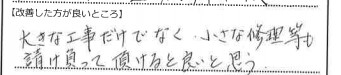 【改善した方が良いところ】
大きな工事だけでなく、小さな修理等も
請け負って頂けると良いと思う